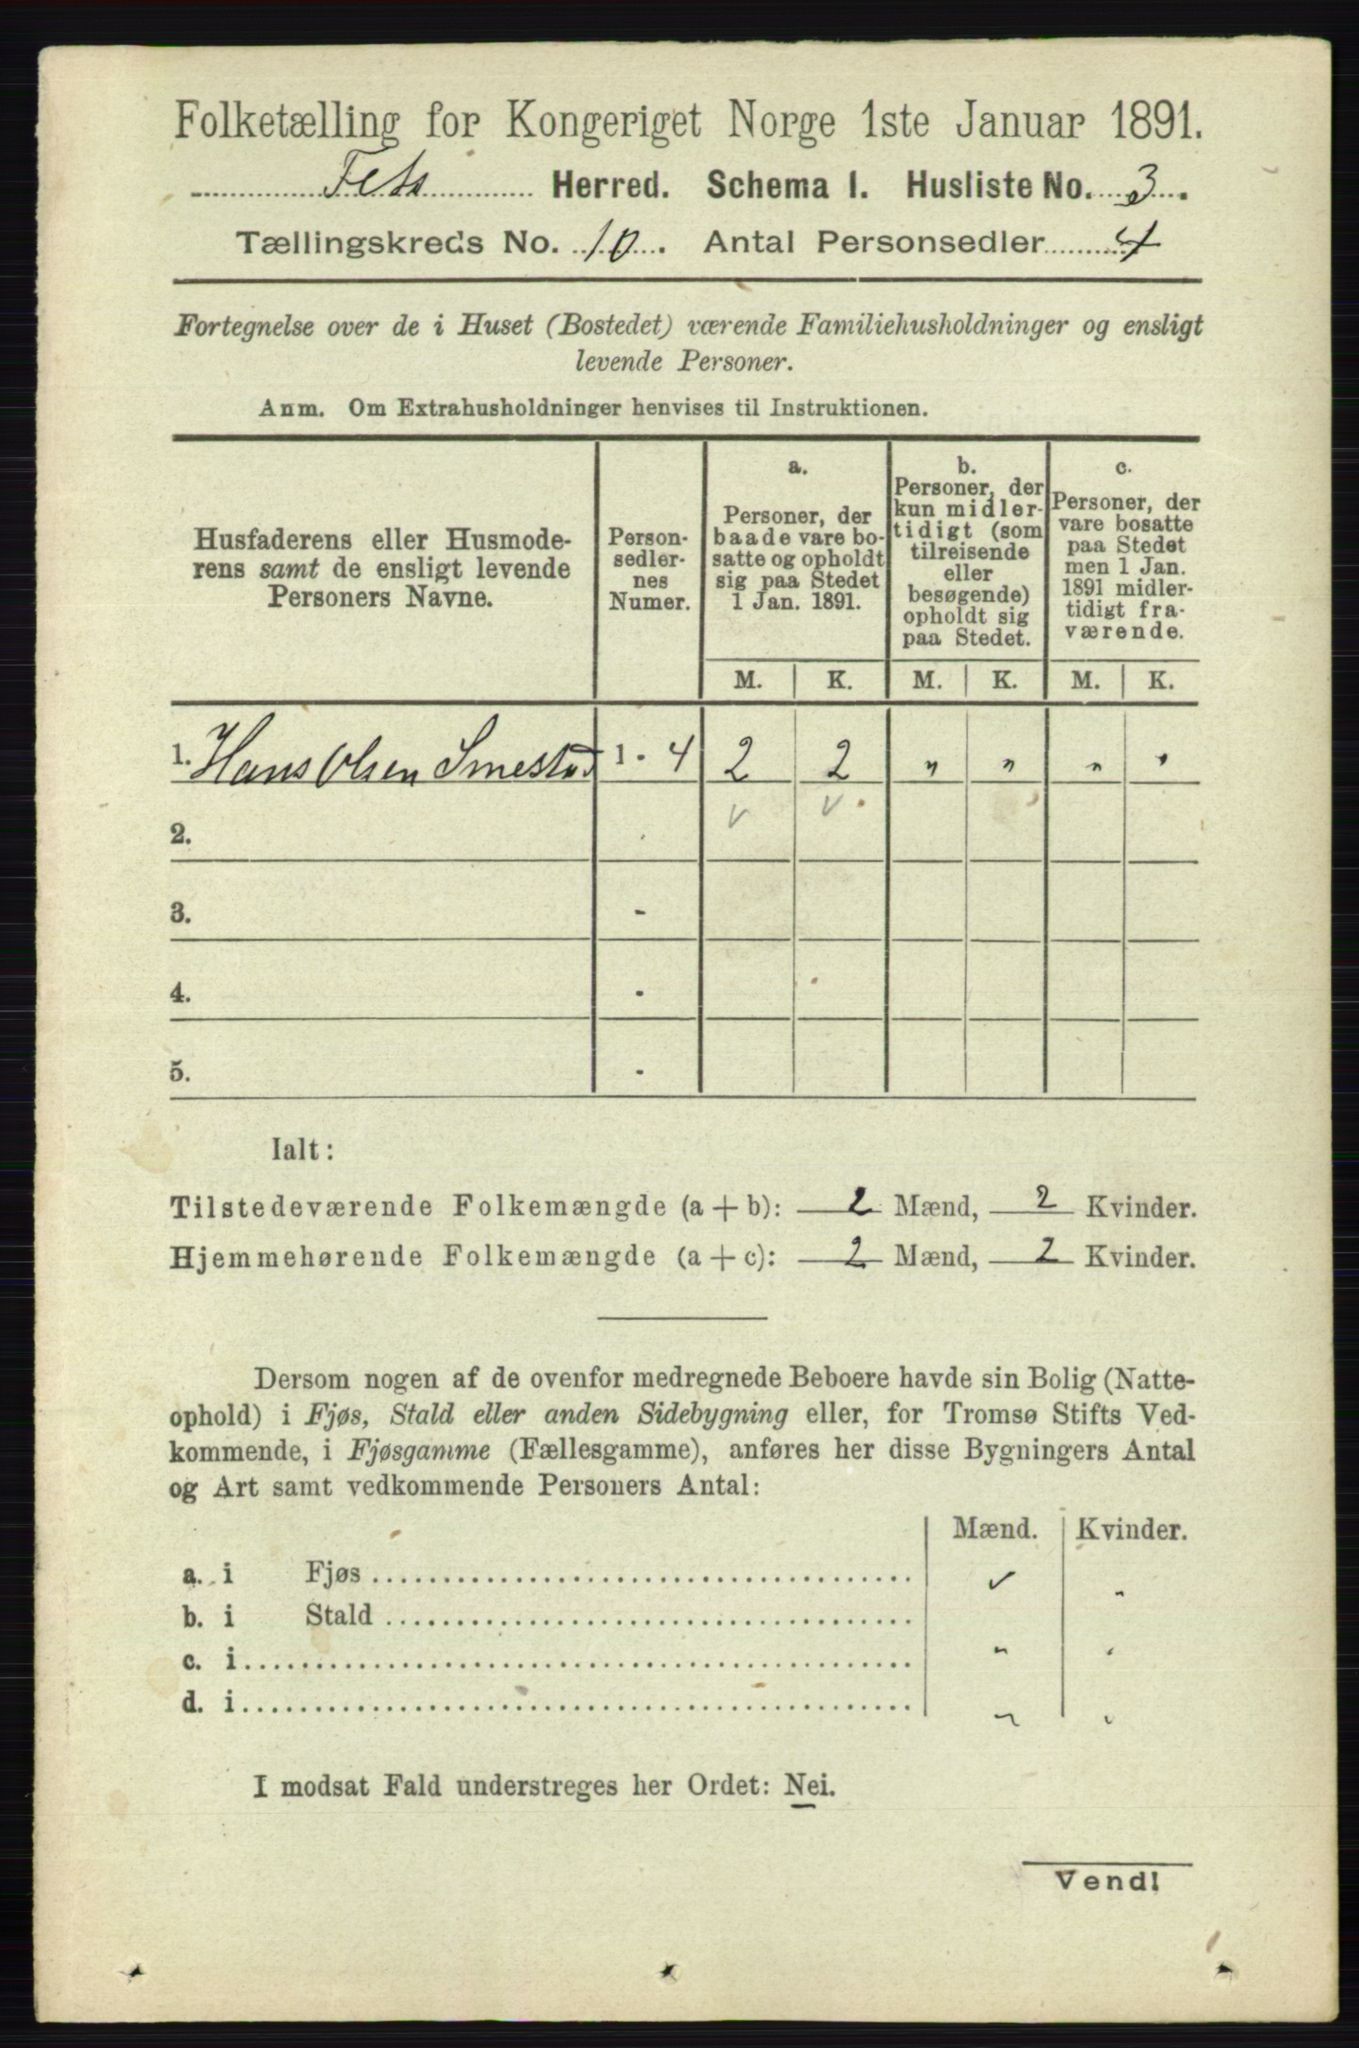 Folketælling for Kongeriget Norge 1ste Januar 1891.
Fets Herred. Schema I. Husliste No. 3.
Tællingskreds No. 10. Antal Personsedler 4
Fortegnelse over de i Huset (Bostedet) værende Familiehusholdninger og ensligt
levende Personer.
Anm. Om Extrahusholdninger henvises til Instruktionen.
Husfaderens eller Husmode-
rens samt de ensligt levende
Personers Navne.
Person-
sedler-
nes
Numer.
a.
Personer, der
baade vare bo-
satte og opholdt
sig paa Stedet
1 Jan. 1891.
b.
Personer, der
kun midler-
tidigt (som
tilreisende
eller
besøgende)
opholdt sig
paa Stedet.
c.
Personer, der
vare bosatte
paa Stedet
men 1 Jan.
1891 midler-
tidigt fra-
værende.
M. K. M. K. M. K.
1. Hans Olsen Smestad 1 - 4 2 2 " " " "
2.
3. -
4. -
5. -
Ialt:
Tilstedeværende Folkemængde (a + b): 2 Mænd, 2 Kvinder.
Hjemmehørende Folkemængde (a + c): 2 Mænd, 2 Kvinder.
Dersom nogen af de ovenfor medregnede Beboere havde sin Bolig (Natte-
ophold) i Fjøs, Stald eller anden Sidebygning eller, for Tromsø Stifts Ved-
kommende, i Fjøsgamme (Fællesgamme), anføres her disse Bygningers Antal
og Art samt vedkommende Personers Antal:
Mænd. Kvinder.
a. i Fjøs "
b. i Stald
c. i " "
d. i " "
I modsat Fald understreges her Ordet: Nei.
Vend!